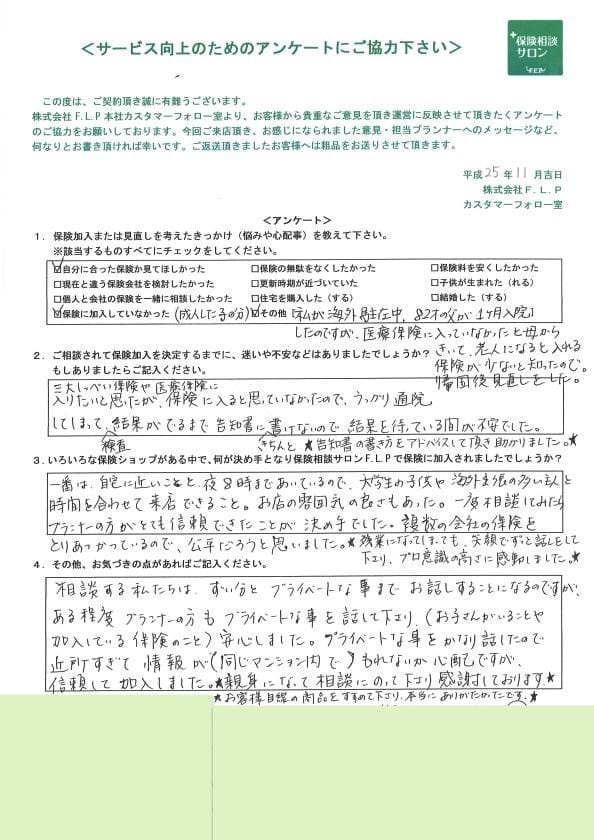 ＜サービス向上のためのアンケートにご協力下さい＞
保険相談
サロン
F.L.P
この度は、ご契約頂き誠に有難うございます。
株式会社F.L.P本社カスタマーフォロー室より、お客様から貴重なご意見を頂き運営に反映させて頂きたくアンケート
のご協力をお願いしております。今回ご来店頂き、お感じになられました意見・担当プランナーへのメッセージなど、
何なりとお書き頂ければ幸いです。ご返送頂きましたお客様へは粗品をお送りさせて頂きます。
平成25年11月吉日
株式会社F.L.P
カスタマーフォロー室
＜アンケート＞
1．保険加入または見直しを考えたきっかけ（悩みや心配事）を教えて下さい。
※該当するものすべてにチェックをしてください。
☑自分に合った保険か見てほしかった □保険の無駄をなくしたかった □保険料を安くしたかった
□現在と違う保険会社を検討したかった □更新時期が近づいていた □子供が生まれた（れる）
□個人と会社の保険を一緒に相談したかった □住宅を購入した（する） □結婚した（する）
☑保険に加入していなかった（成人した子の分） ☑その他（私が海外居住中、82才の父が1ヶ月入院
したのですが、医療保険に入っていなかったと母から
きいて、老人になると入れる
保険が少ないと知ったので。
帰国後見直しをした。
2．ご相談されて保険加入を決定するまでに、迷いや不安などはありましたでしょうか？
もしありましたらご記入ください。
三大しっぺい保険や医療保険に
入りたいと思ったが、保険に入ると思っていなかったので、うっかり通院
してしまって、結果がでるまで告知書に書けないので結果を待っている間が不安でした。
検査 きちんと ★告知書の書き方をアドバイスして頂き助かりました。★
3．いろいろな保険ショップがある中で、何が決め手となり保険相談サロンF.L.Pで保険に加入されましたでしょうか？
一番は、自宅に近いことと、夜8時まであいているので、大学生の子供や海外出張の多い主人と
時間を合わせて来店できること。お店の雰囲気の良さもあった。一度相談してみたら
プランナーの方がとても信頼できたことが決め手でした。複数の会社の保険を
とりあつかっているので、公平だろうと思いました。★残業になってしまっても、笑顔でずっと話しをして
下さり、プロ意識の高さに感動しました。★
4．その他、お気づきの点があればご記入ください。
相談する私たちは、ずい分とプライベートな事までお話しすることになるのですが、
ある程度プランナーの方もプライベートな事を話して下さり、（お子さんがいることや
加入している保険のこと）安心しました。プライベートな事をかなり話したので
近所すぎて情報が（同じマンション内で）もれないか心配ですが、
信頼して加入しました。★親身になって相談にのって下さり感謝しております。★
★お客様目線の商品をすすめて下さり、本当にありがたかったです。★